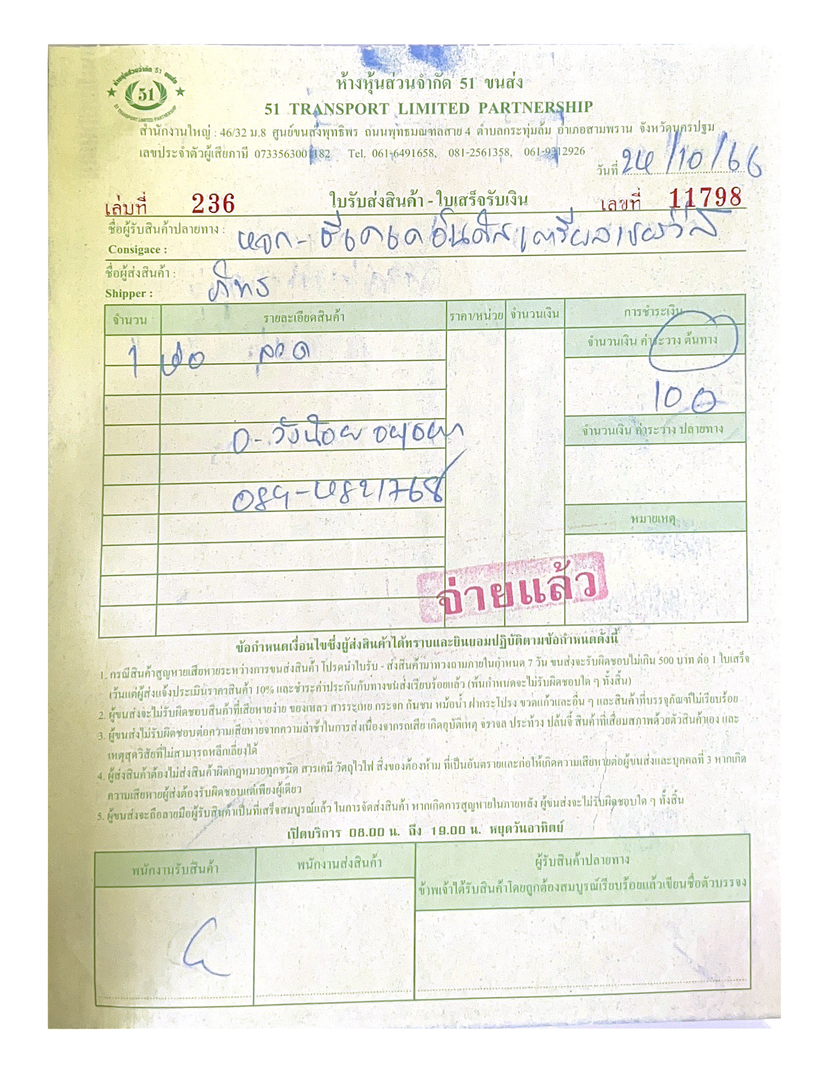 ห้างหุ้นส่วนจำกัด 51 ขนส่ง
51 TRANSPORT LIMITED PARTNERSHIP
สำนักงานใหญ่ : 46/32 ม.8 ศูนย์ขนส่งพุทธิพร ถนนพุทธมณฑลสาย 4 ตำบลกระทุ่มล้ม อำเภอสามพราน จังหวัดนครปฐม
เลขประจำตัวผู้เสียภาษี Tel. 061-6491658, 081-2561358,
วันที่ 24/10/66
เล่มที่ 236 ใบรับส่งสินค้า - ใบเสร็จรับเงิน เลขที่ 11798
ชื่อผู้รับสินค้าปลายทาง :
Consigace : หจก-
ชื่อผู้ส่งสินค้า :
Shipper :
จำนวน รายละเอียดสินค้า ราคา/หน่วย จำนวนเงิน การชำระเงิน
จำนวนเงิน ค่าระวาง ต้นทาง
1 ห่อ ลวด
100
อ-วังน้อย อยุธยา
จำนวนเงิน ค่าระวาง ปลายทาง
หมายเหตุ
จ่ายแล้ว
ข้อกำหนดเงื่อนไขซึ่งผู้ส่งสินค้าได้ทราบและยินยอมปฏิบัติตามข้อกำหนดดังนี้
1. กรณีสินค้าสูญหายเสียหายระหว่างการขนส่งสินค้า โปรดนำใบรับ - ส่งสินค้ามาทวงถามภายในกำหนด 7 วัน ขนส่งจะรับผิดชอบไม่เกิน 500 บาท ต่อ 1 ใบเสร็จ
(เว้นแต่ผู้ส่งแจ้งประเมินราคาสินค้า 10% และชำระค่าประกันกับทางขนส่งเรียบร้อยแล้ว (พ้นกำหนดจะไม่รับผิดชอบใด ๆ ทั้งสิ้น)
2. ผู้ขนส่งจะไม่รับผิดชอบสินค้าที่เสียหายง่าย ของเหลว สารระเหย กระจก กันชน หม้อน้ำ ฝากระโปรง ขวดแก้วและอื่น ๆ และสินค้าที่บรรจุภัณฑ์ไม่เรียบร้อย
3. ผู้ขนส่งไม่รับผิดชอบต่อความเสียหายจากความล่าช้าในการส่งเนื่องจากรถเสีย เกิดอุบัติเหตุ จราจล ประท้วง ปล้นจี้ สินค้าที่เสื่อมสภาพด้วยตัวสินค้าเอง และ
เหตุสุดวิสัยที่ไม่สามารถหลีกเลี่ยงได้
4. ผู้ส่งสินค้าต้องไม่ส่งสินค้าผิดกฎหมายทุกชนิด สารเคมี วัตถุไวไฟ สิ่งของต้องห้าม ที่เป็นอันตรายและก่อให้เกิดความเสียหายต่อผู้ขนส่งและบุคคลที่ 3 หากเกิด
ความเสียหายผู้ส่งต้องรับผิดชอบแต่เพียงผู้เดียว
5. ผู้ขนส่งจะถือลายมือผู้รับสินค้าเป็นที่เสร็จสมบูรณ์แล้ว ในการจัดส่งสินค้า หากเกิดการสูญหายในภายหลัง ผู้ขนส่งจะไม่รับผิดชอบใด ๆ ทั้งสิ้น
เปิดบริการ 08.00 น. ถึง 19.00 น. หยุดวันอาทิตย์
พนักงานรับสินค้า พนักงานส่งสินค้า ผู้รับสินค้าปลายทาง
ข้าพเจ้าได้รับสินค้าโดยถูกต้องสมบูรณ์เรียบร้อยแล้วเขียนชื่อตัวบรรจง